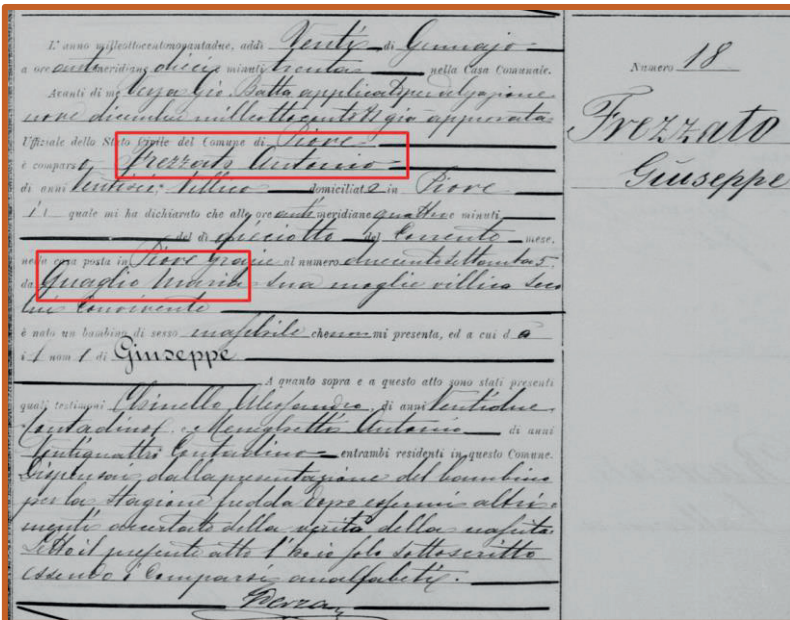 L'anno milleottocentonovantadue, addi Venti di Gennajo
a ore antimeridiane dieci e minuti trenta nella Casa Comunale.
Avanti di me Gio. Batta applicato per delegazione
nove dicembre milleottocento già approvata
Uffiziale dello Stato Civile del Comune di Piove
è comparso Frezzato Antonio
di anni Ventisei Villico domiciliato in Piove
il quale mi ha dichiarato che alle ore antimeridiane quattro e minuti
del dì dieciotto del corrente mese,
nella casa posta in Piove grazie al numero duecentosettanta 5,
da Quaglio Maria sua moglie villica seco
lui convivente
è nato un bambino di sesso maschile che non mi presenta, ed a cui dà
il nom di Giuseppe
A quanto sopra e a questo atto sono stati presenti
quali testimoni Chinello Alessandro, di anni Ventidue
Contadino e Meneghetti Antonio di anni
Ventiquattro Contadino entrambi residenti in questo Comune.
Dispensai dalla presentazione del bambino
per la stagione fredda dopo essermi altri
menti accertato della verità della nascita.
Letto il presente atto l'ho io solo sottoscritto
essendo i comparsi analfabeti.
Numero 18
Frezzato
Giuseppe